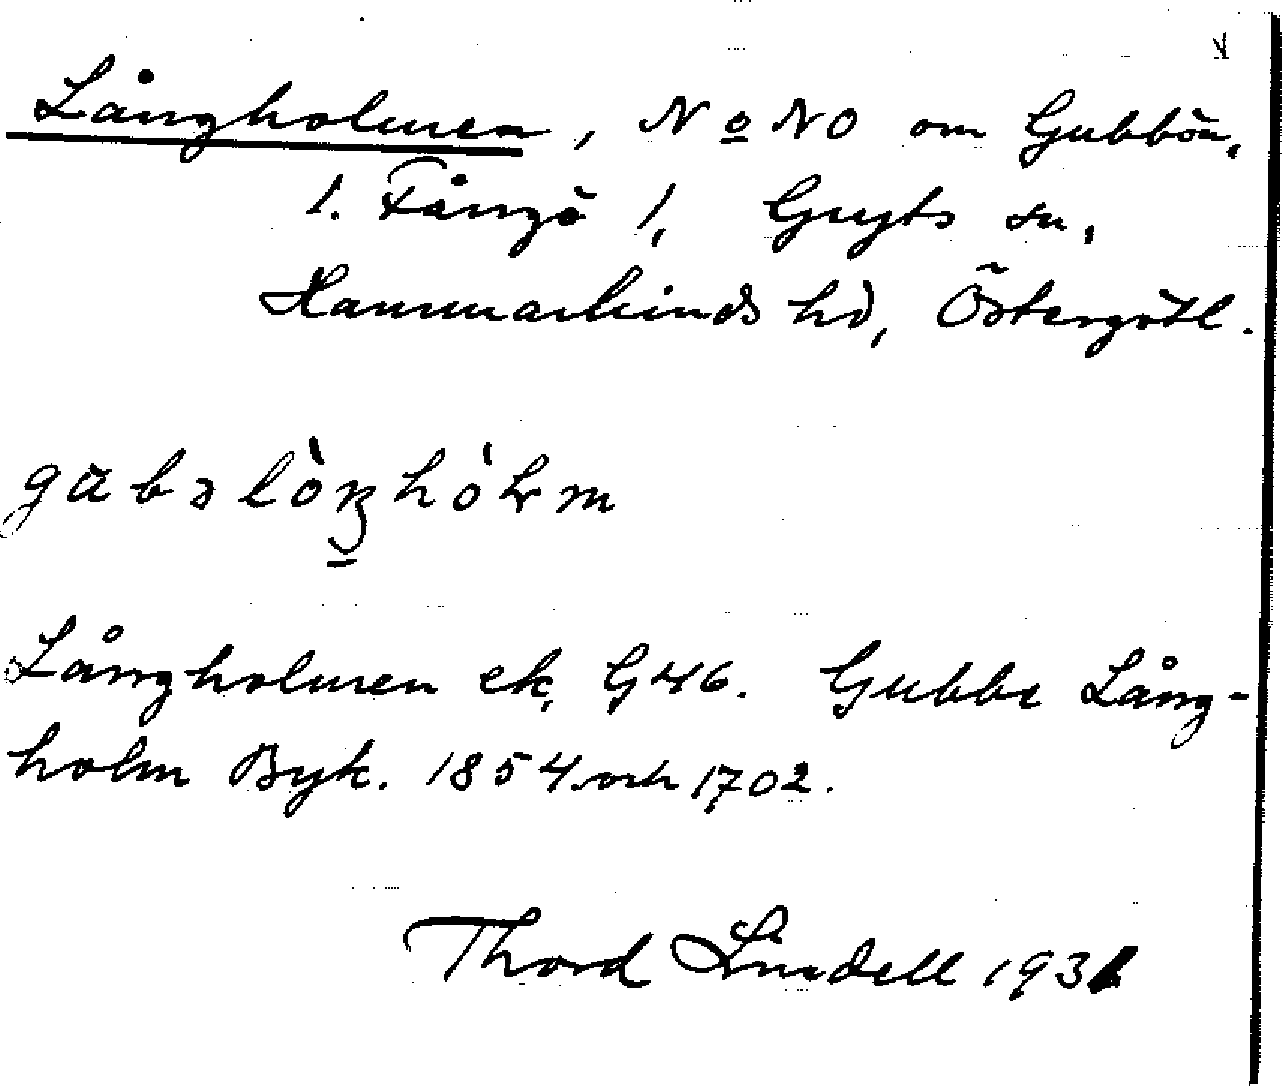 Långholmen, N o NO om Gubbön,
1. Fångö 1, Gryts sn,
Hammarkinds hd, Östergötl.
Långholmen ek. G 46. Gubbe Lång-
holm Byk. 1854 och 1702.
Thord Lindell 1931